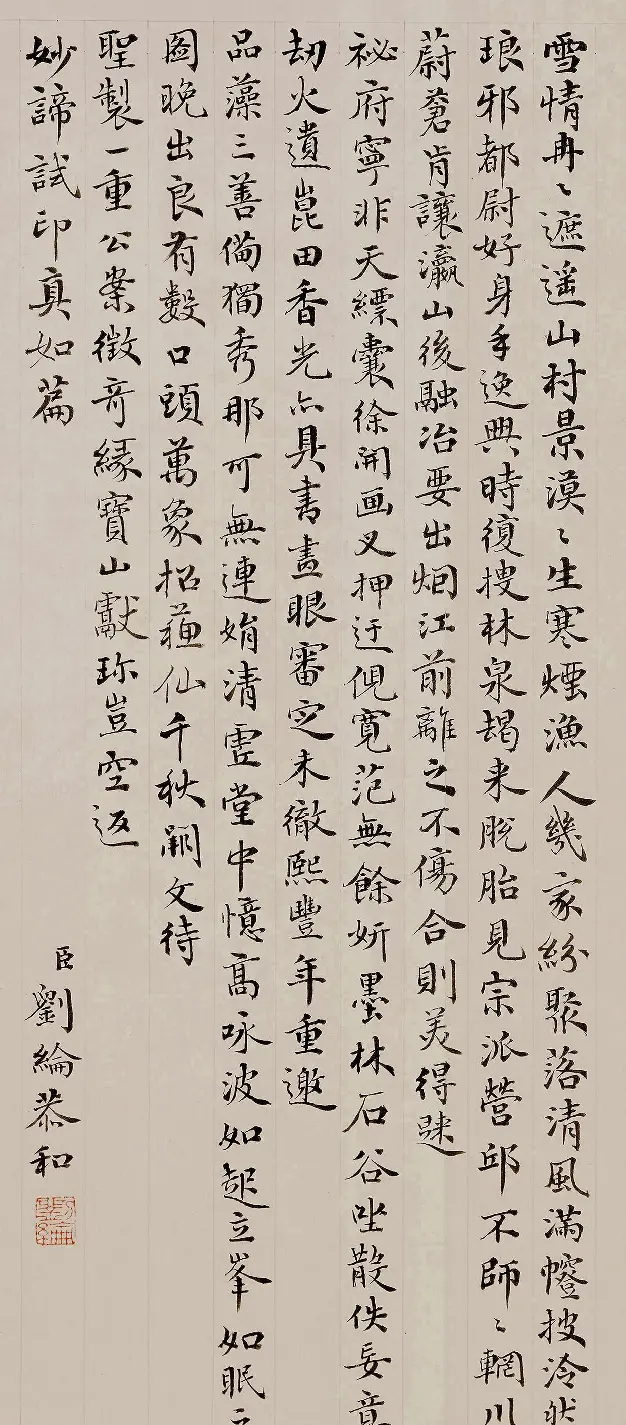 雪情冉〻遮遥山村景漠〻生寒煙漁人幾家紛聚落清風滿幛披泠然
琅邪都尉好身手逸興時復搜林泉朅来脫胎見宗派營邱不師〻輞川
蔚蒼肯讓瀛山後融冶要出烟江前離之不傷合則美得趣
祕府寧非天縹囊徐開画叉押迂倪寬范無餘妍墨林石谷坐散佚妄意
劫火遺崑田香光亦具書畫眼審定未徹熙豐年重邀
品藻三善備獨秀那可無連娟清虛堂中憶高咏波如起立峯如眠
圖晚出良有數口頭萬象招蘓仙千秋闕文待
聖製一重公案徵奇緣寶山獻珎豈空返
妙諦試印真如篇
臣劉綸恭和